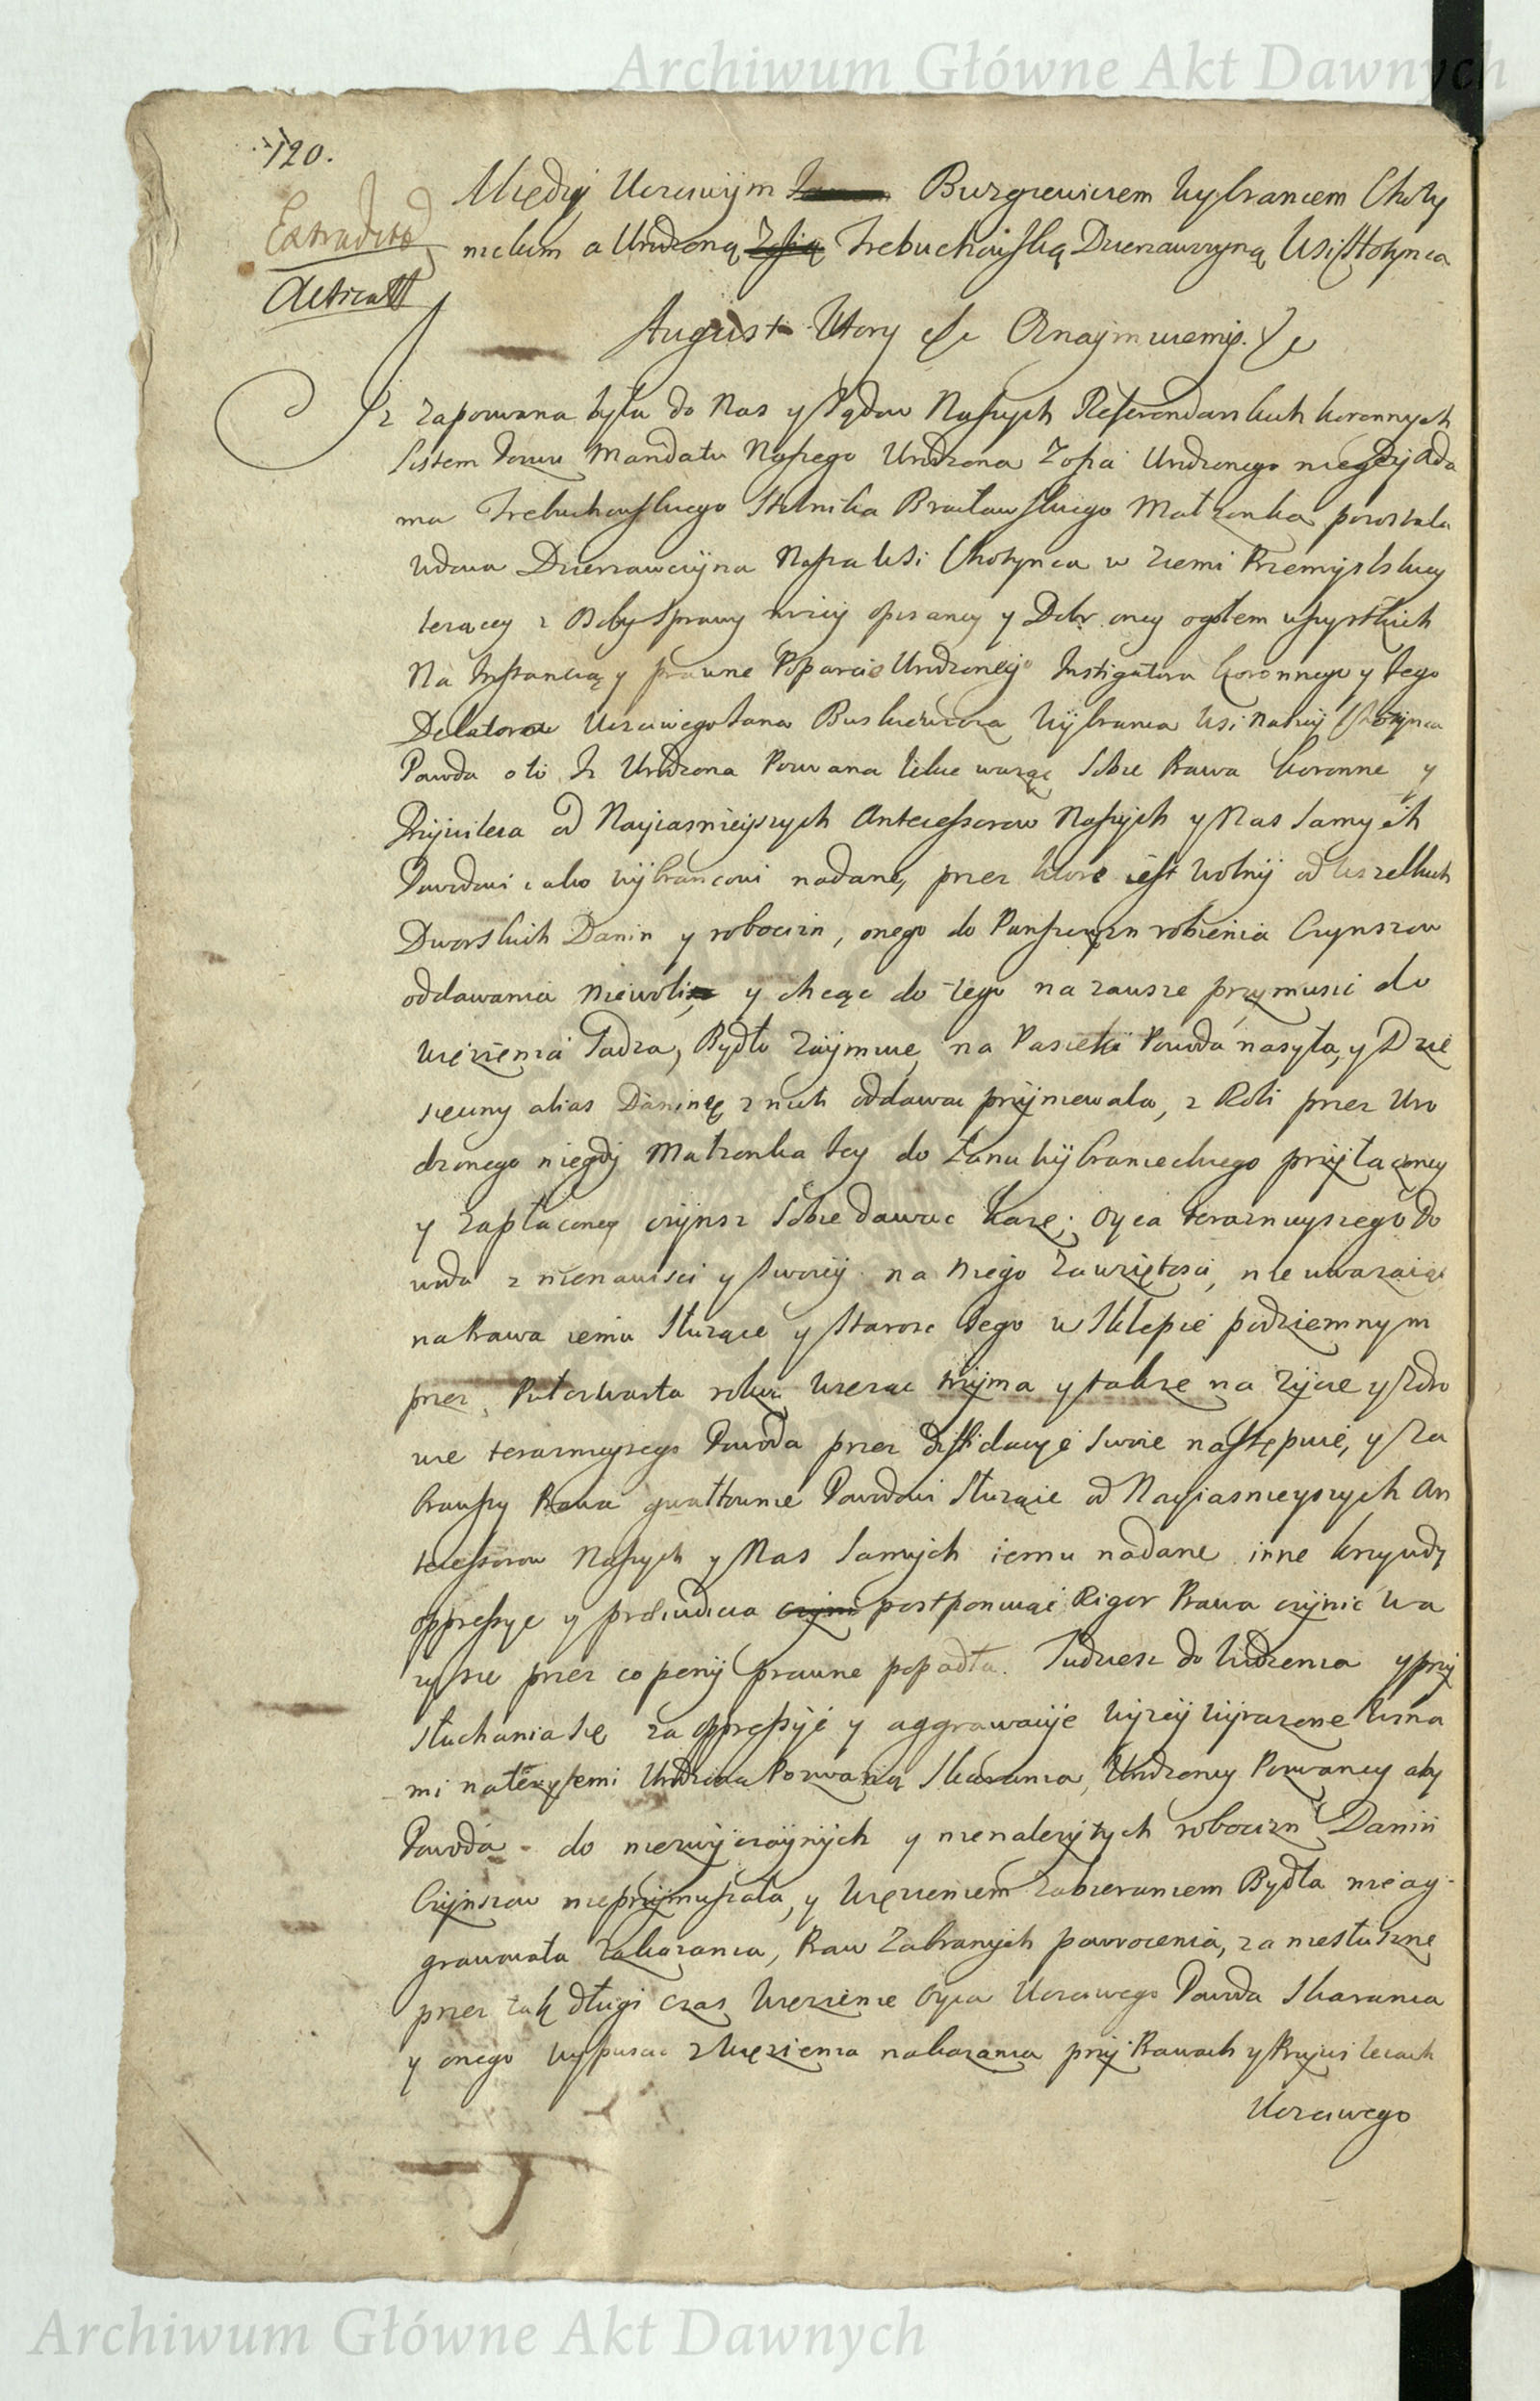 Archiwum Główne Akt Dawnych
120.
Extradit
Między Uczciwym Burgiewiczem Wybrancem Choty
nieckim a Urodzoną Zofią Trebuchowską Dzierzawczyną Wsi Chotynca
August Wtory &c Oznaymuiemy. &c
Iz zapozwana była do Nas y Sądow Naszych Referendarskich koronnych
listem Pozwu Mandatu Naszego Urodzona Zofia Urodzonego niegdy Ada
ma Trebuchowskiego Stolnika Bracławskiego Małzonka pozostała
wdowa Dzierzawczyna Nasza Wsi Chotynca w ziemi Przemyslskiey
lezącey z Osoby Sprawy nizey opisaney y Dobr oney ogołem wszystkich
Na Instancią y prawne Poparcie Urodzonego Instigatora koronnego y Jego
Delatora Uczciwego Jana Buskiewicza Wybranca Wsi Naszey Chotynca
Powoda o to Iz Urodzona Pozwana lekce waząc sobie Prawa koronne y
Przywileia od Nayiasnieyszych Antecessorow Naszych y Nas samych
Powodowi iako wybrancowi nadane, przez ktore iest wolny od wszelkich
Dworskich Danin y robocizn, onego do Panszczyzn robienia Czynszow
oddawania niewoli, y chcąc do tego na zawsze przymusic do
więzienia Sadza, Bydło zaymuie, na Pasieki Powoda nasyła, y Dzie
sięciny alias Daninę z nich oddawac przyniewala, z Roli przez Uro
dzonego niegdy Małzonka Jey do Łanu wybranieckiego przyłączoney
y zapłaconey czynsz sobie dawac kaze; oyca teraznieyszego Po
woda z nienawisci y swoiey na niego zawziętosci, nie uwazaiąc
na Prawa iemu słuzące y starosc Jego w Sklepie podziemnym
przez Połczwarta roku wiezac trzyma y takze na zycie y zdro
wie teraznieyszego Powoda przez diffidacye swoie następuie, y za
brawszy Prawa gwałtownie Powodowi słuzące od Nayiasnieyszych An
tecessorow Naszych y Nas samych iemu nadane inne krzywdy
oppressye y proeiudicia postponuiąc Rigor Prawa czynic wa
zy sie przez co peny prawne popadła. Tudziesz do widzenia y przy
słuchania się za oppressye y aggrawacye wyzey wyrazone wina
mi nalezytemi Urodzoną Pozwaną Skarania, Urodzoney Pozwaney aby
Powoda do niezwyczaynych y nienalezytych robocizn Danin
Czynszow nieprzymuszała, y więzieniem zabieraniem Bydła nie ag
grawowała zakazania, Praw zabranych powrocenia, za niesłuszne
przez tak długi czas więzienie oyca Uczciwego Powoda Skarania
y onego wypuscic z więzienia nakazania przy Prawach y Przywileiach
Uczciwego
Archiwum Główne Akt Dawnych